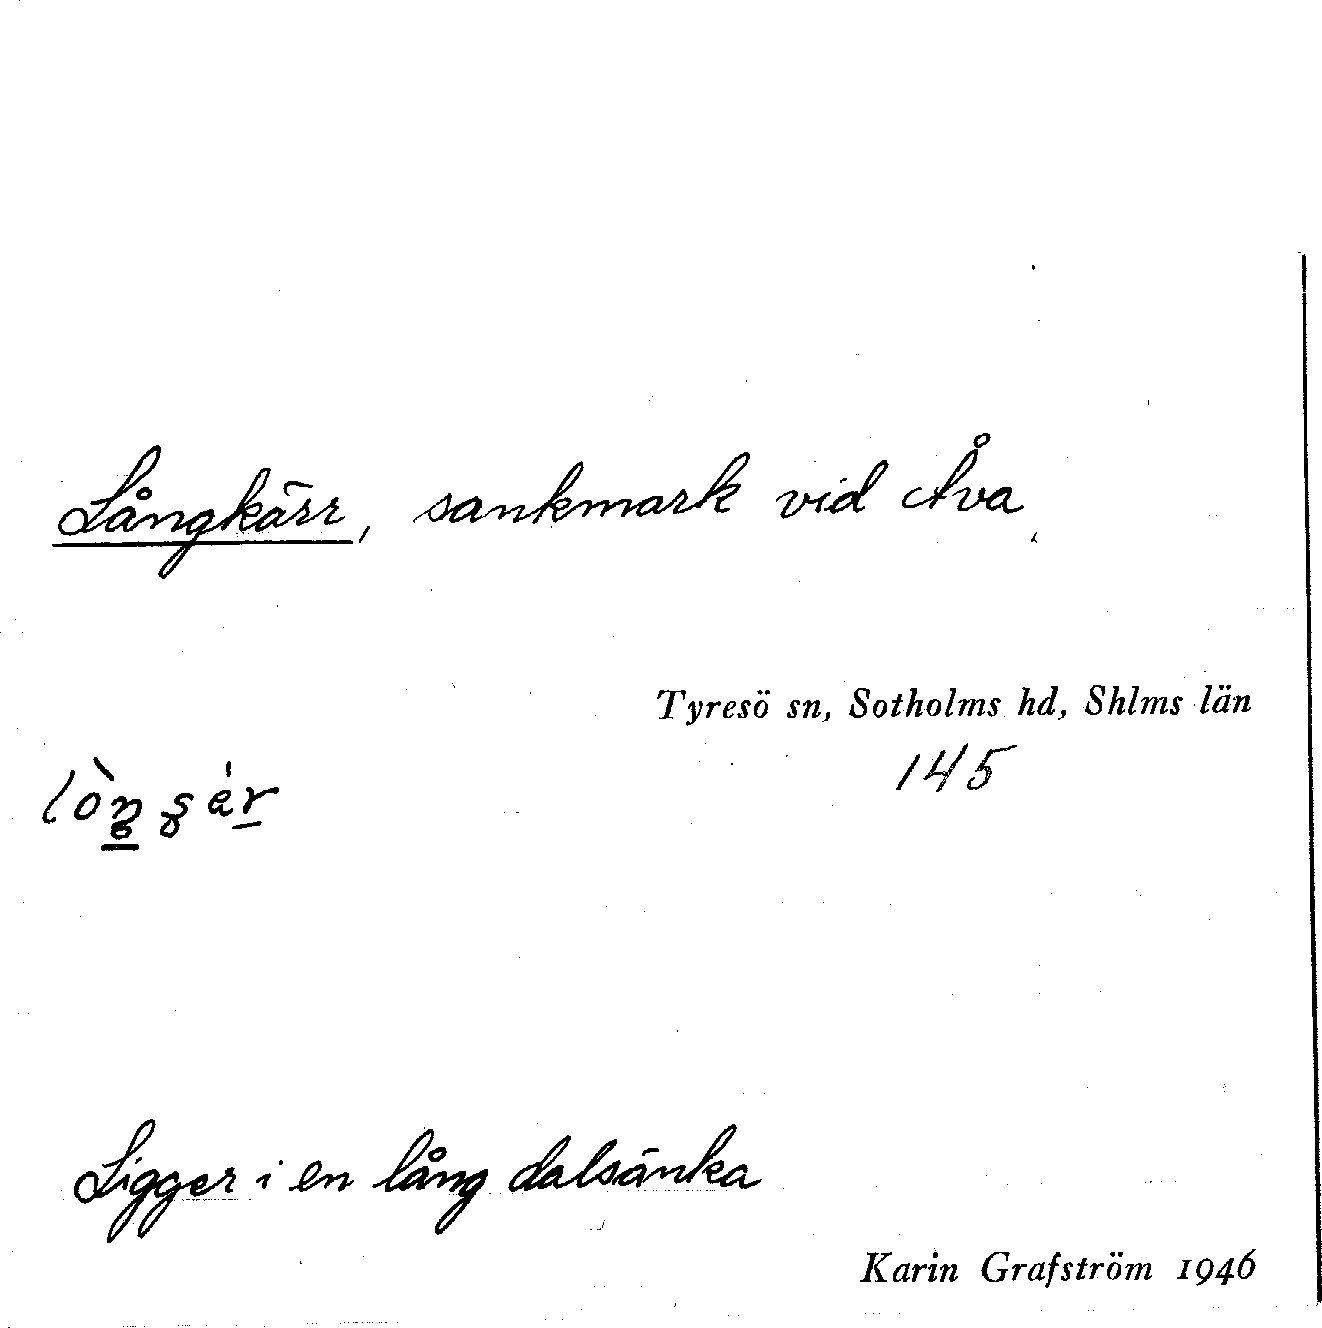 Långkärr, sankmark vid Åva
Tyresö sn, Sotholms hd, Shlms län
145
Ligger i en lång dalsänka
Karin Grafström 1946